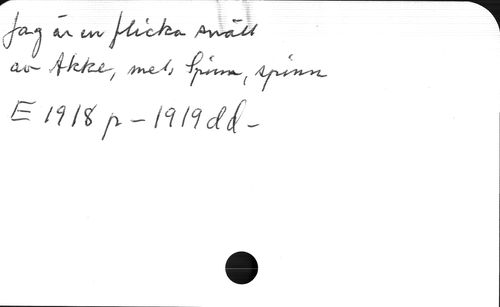 Jag är en flicka snäll
av Akke, mel. Spinn, spinn
E 1918 p - 1919 dd -